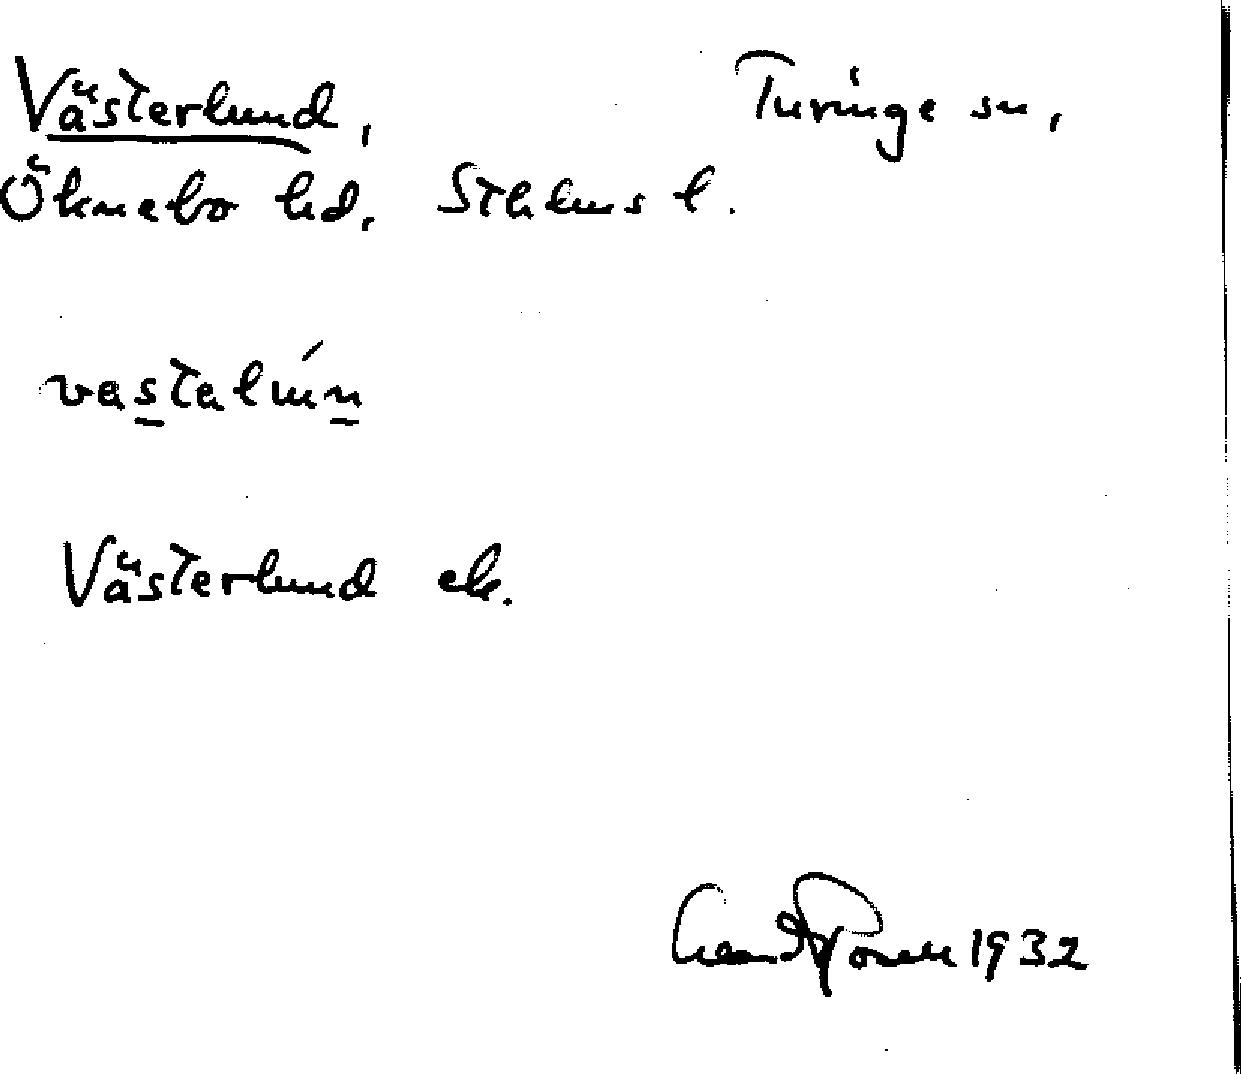 Västerlund, Turinge sn,
Öknebo hd, Sthlms l.
vastalun
Västerlund ek.
1932